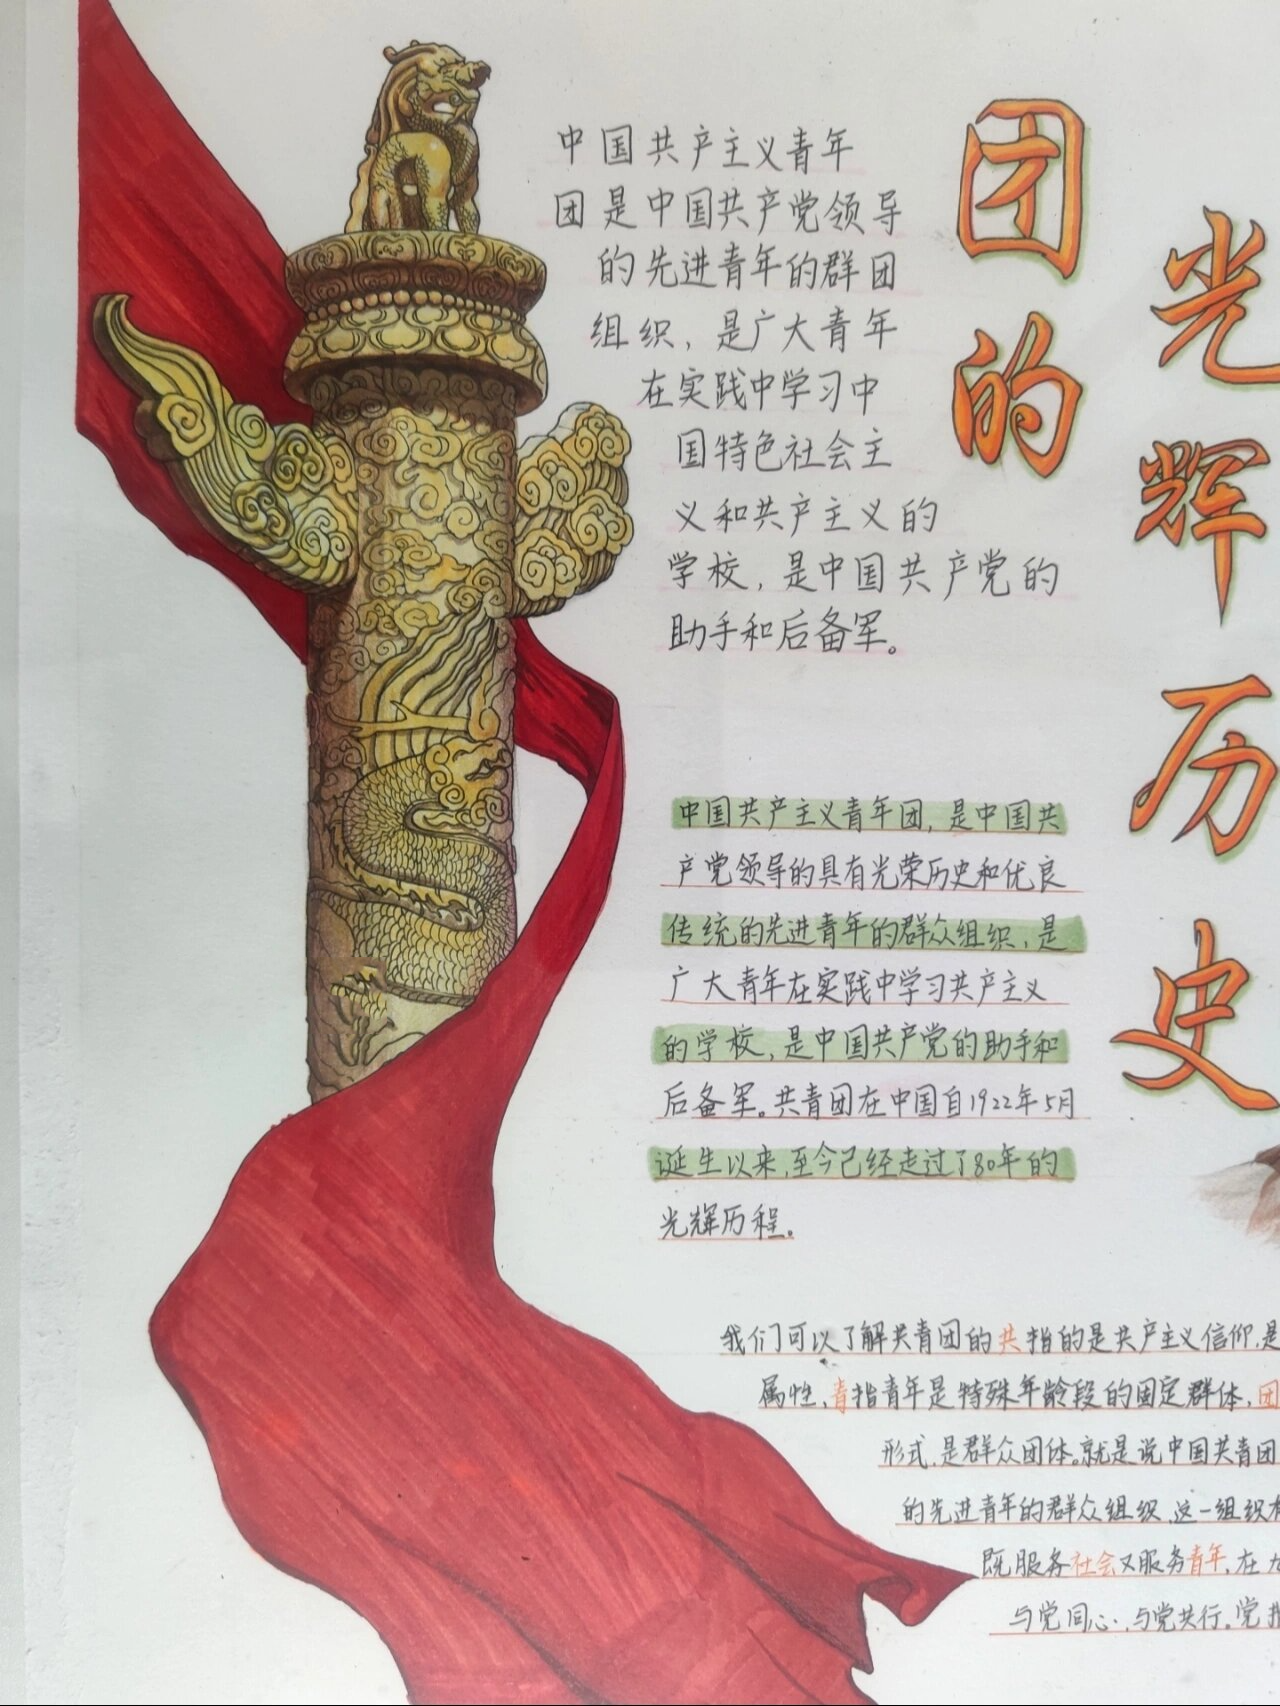 团的
光辉历史
中国共产主义青年
团是中国共产党领导
的先进青年的群团
组织，是广大青年
在实践中学习中
国特色社会主
义和共产主义的
学校，是中国共产党的
助手和后备军。
中国共产主义青年团，是中国共
产党领导的具有光荣历史和优良
传统的先进青年的群众组织，是
广大青年在实践中学习共产主义
的学校，是中国共产党的助手和
后备军。共青团在中国自1922年5月
诞生以来，至今已经走过了80年的
光辉历程。
我们可以了解共青团的共指的是共产主义信仰，是
属性，青指青年是特殊年龄段的固定群体，团
形式，是群众团体。就是说中国共青团
的先进青年的群众组织，这一组织
既服务社会又服务青年，在
与党同心，与党共行。党指